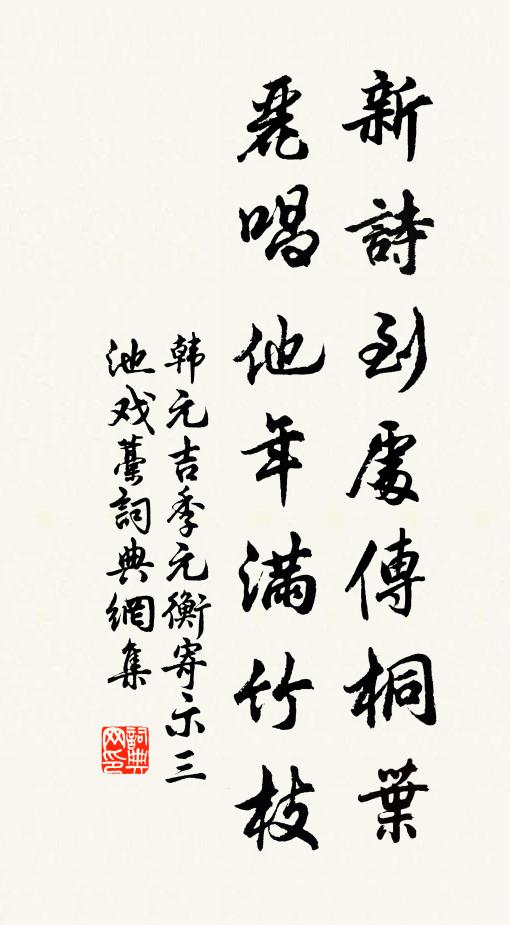 新詩到處傳桐葉
麗唱他年滿竹枝
韩元吉季元衡寄示三
池戏藁詞典網集
詞典网印